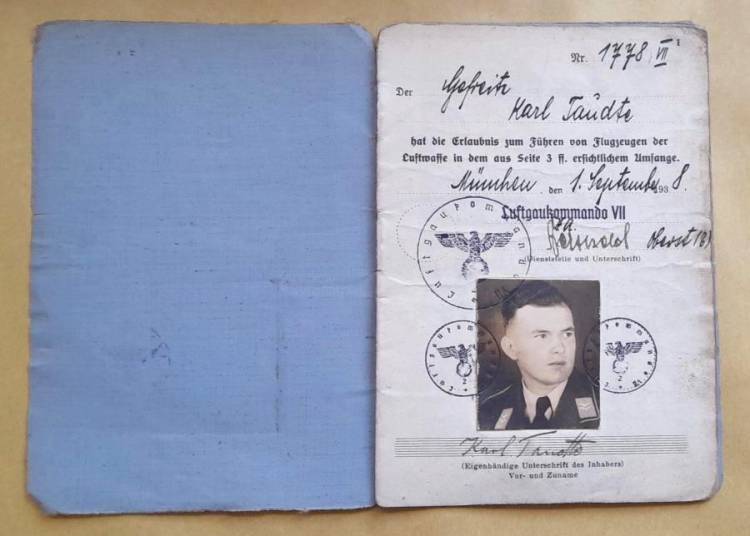 1
Nr. 1778/VII
Der Gefreite
Karl Taudte
hat die Erlaubnis zum Führen von Flugzeugen der
Luftwaffe in dem aus Seite 3 ff. ersichtlichem Umfange.
München, den 1. September 1938.
Luftgaukommando VII
Oberst
(Dienststelle und Unterschrift)
Luftgaukommando VII
Luftgaukommando VII
2
Luftgaukommando VII
2
Karl Taudte
(Eigenhändige Unterschrift des Inhabers)
Vor- und Zuname